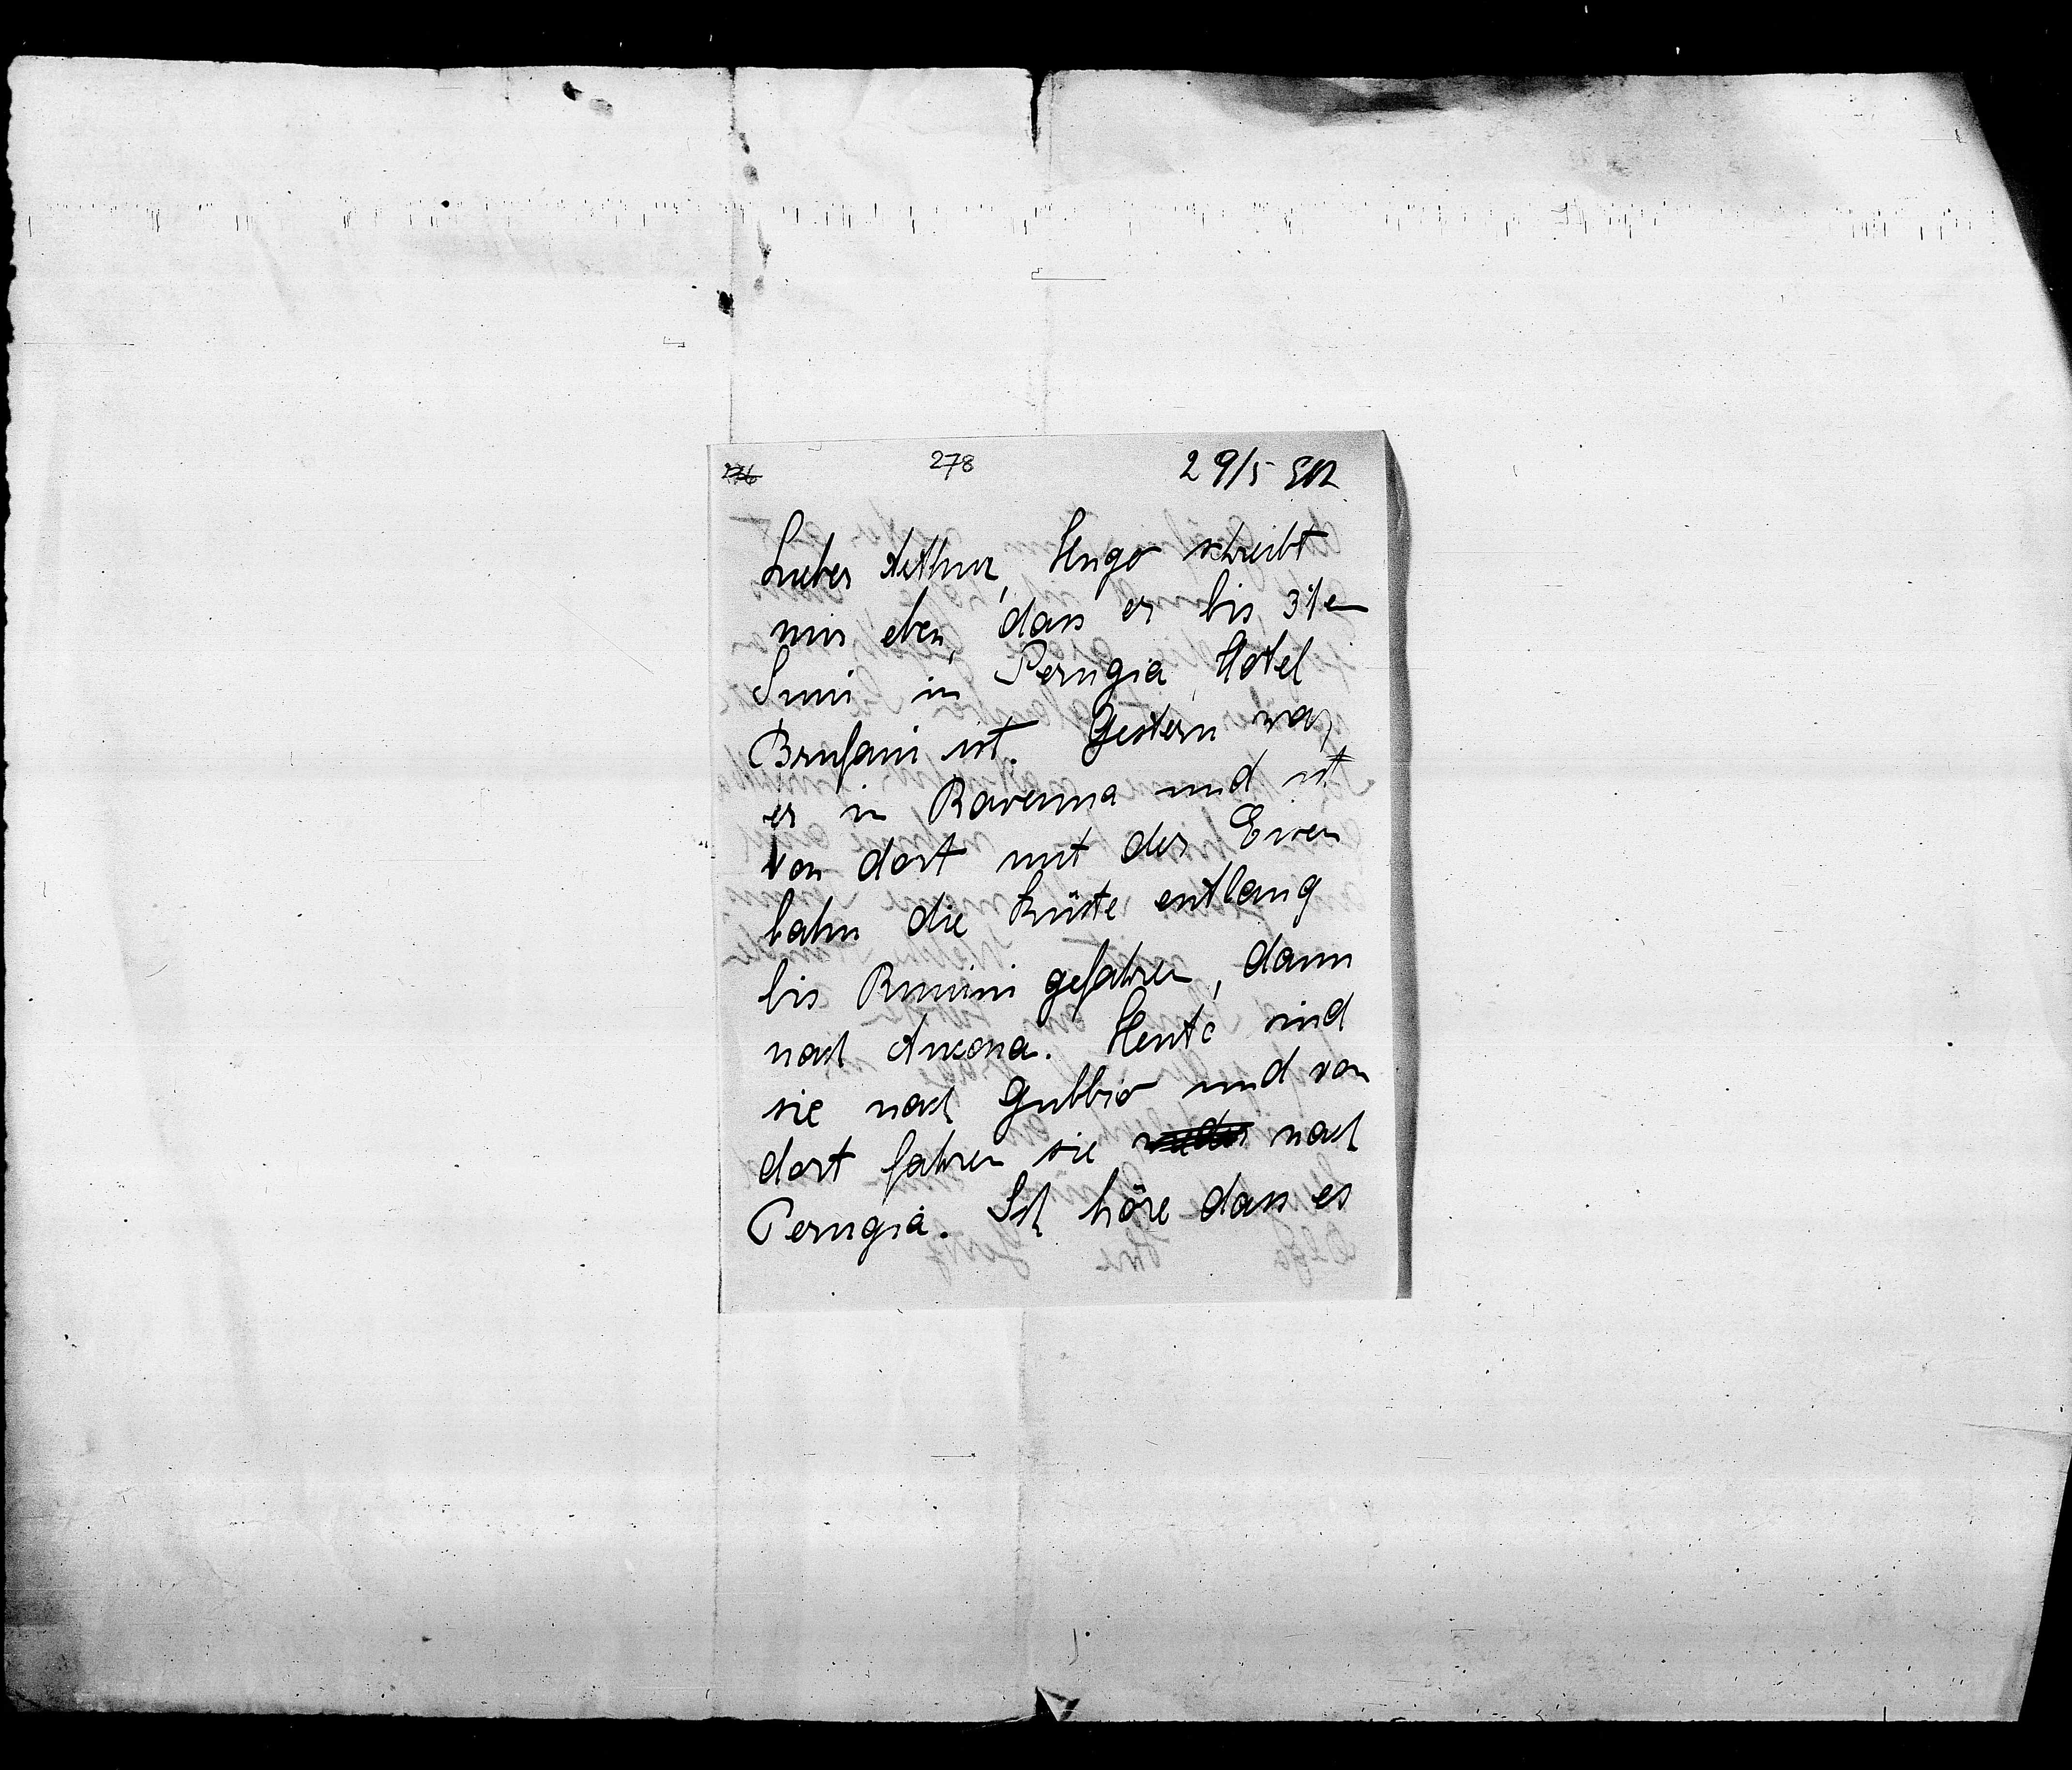 278
29/5 912
Lieber Arthur, Hugo schreibt
mir eben, dass er bis 3ten
Juni in Perugia, Hotel
Brufani ist. Gestern war
er in Ravenna und ist
von dort mit der Eisen
bahn die Küste entlang
bis Rimini gefahren, dann
nach Ancona. Heute sind
sie nach Gubbio und von
dort fahren sie nach
Perugia. Ich höre dass es